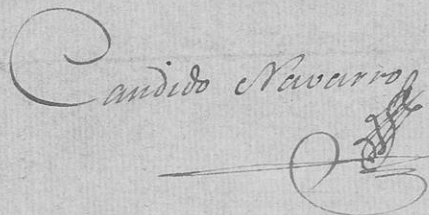 Candido Navarro